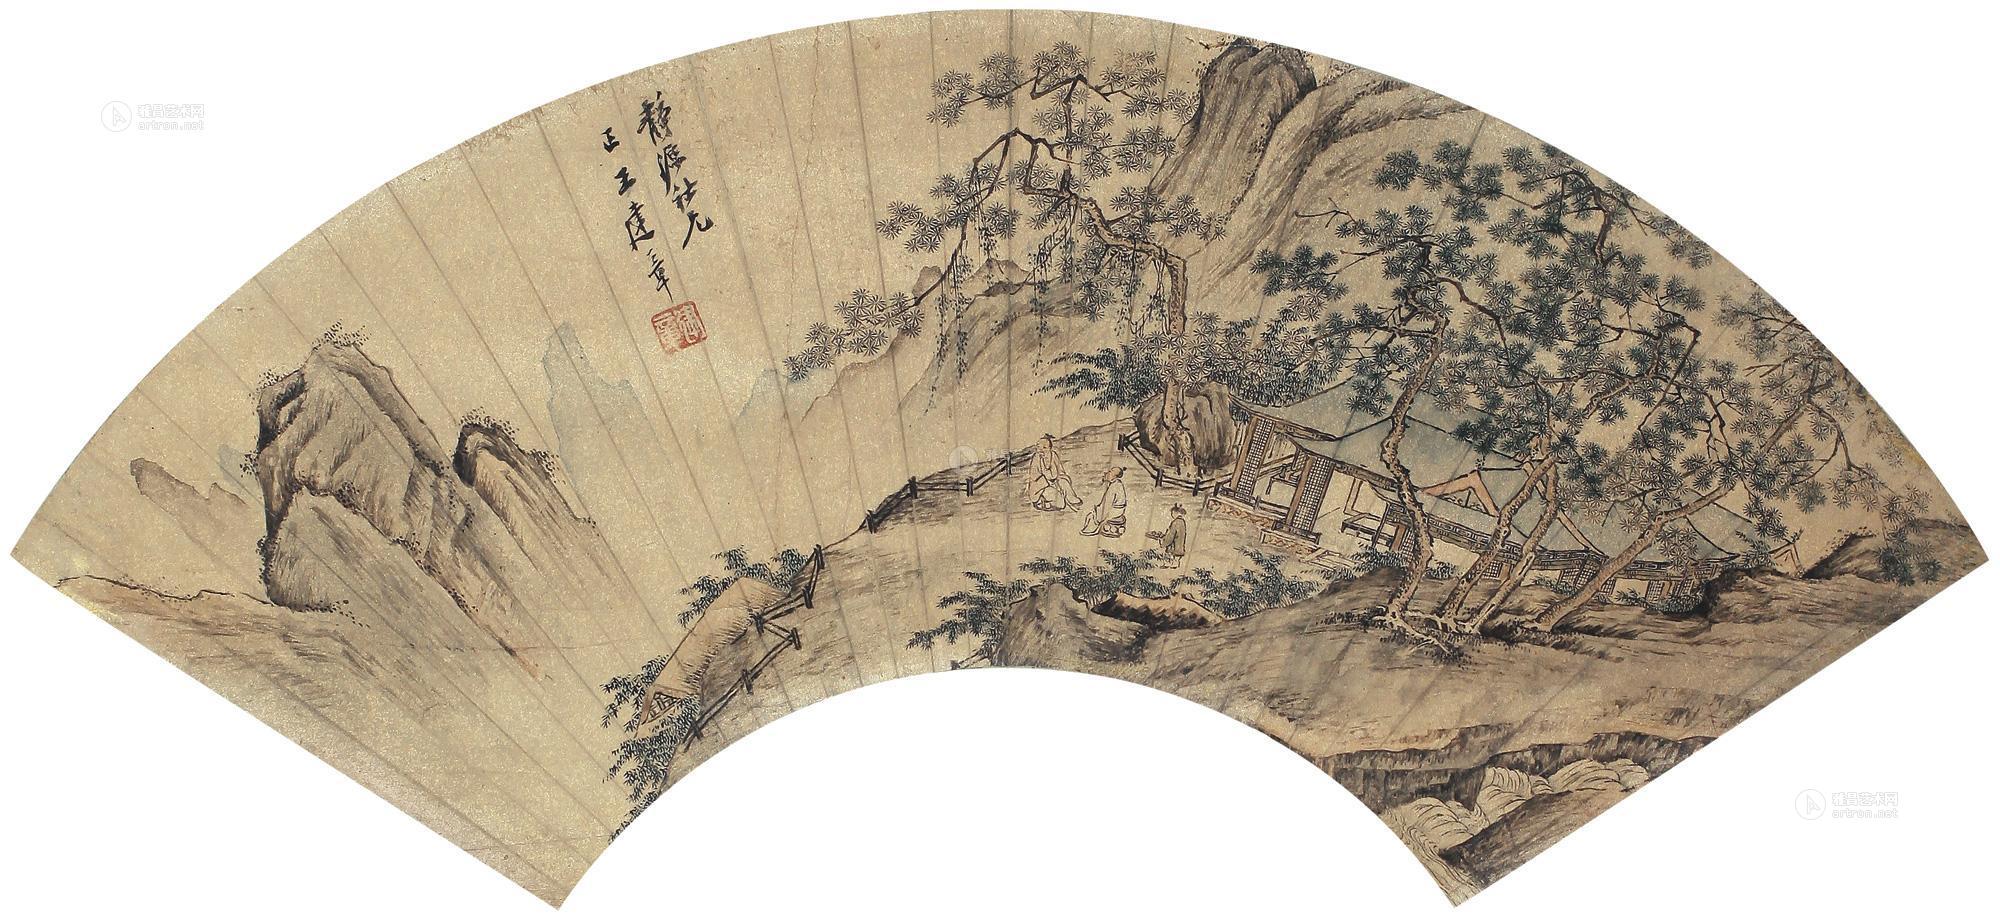 靜源社兄
正王建章
雅昌艺术网
artron.net
雅昌艺术网
artron.net